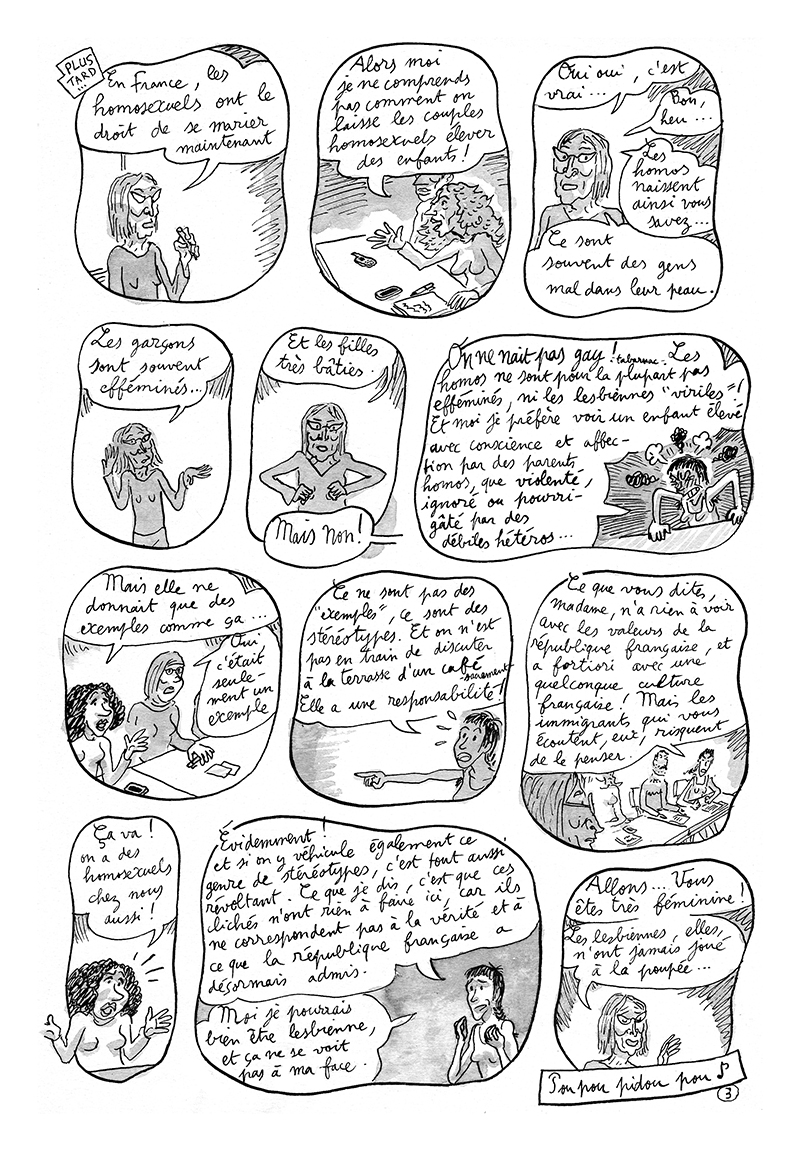 PLUS
TARD...
En France, les
homosexuels ont le
droit de se marier
maintenant
Alors moi
je ne comprends
pas comment on
laisse les couples
homosexuels élever
des enfants !
Oui oui, c'est
vrai...
Bon,
heu...
Les
homos
naissent
ainsi vous
savez...
Ce sont
souvent des gens
mal dans leur peau.
Les garçons
sont souvent
efféminés...
Et les filles
très bâties.
Mais Non !
On ne nait pas gay ! tabarnac. Les
homos ne sont pour la plupart pas
efféminés, ni les lesbiennes "viriles" !
Et moi je préfère voir un enfant élevé
avec conscience et affec-
tion par des parents
homos, que violenté,
ignoré ou pourri-
gâté par des
débiles hétéros...
Mais elle ne
donnait que des
exemples comme ça...
Oui
c'était
seule-
ment un
exemple
Ce ne sont pas des
"exemples", ce sont des
stéréotypes. Et on n'est
pas en train de discuter
à la terrasse d'un café
sacrement
Elle a une responsabilité !
Ce que vous dites,
madame, n'a rien à voir
avec les valeurs de la
république française, et
a fortiori avec une
quelconque culture
française ! Mais les
immigrants qui vous
écoutent, eux, risquent
de le penser.
Ça va !
on a des
homosexuels
chez nous
aussi !
Évidemment !
et si on y véhicule également ce
genre de stéréotypes, c'est tout aussi
révoltant. Ce que je dis, c'est que ces
clichés n'ont rien à faire ici, car ils
ne correspondent pas à la vérité et à
ce que la république française a
désormais admis.
Moi je pourrais
bien être lesbienne,
et ça ne se voit
pas à ma face.
Allons... Vous
êtes très féminine !
Les lesbiennes, elles,
n'ont jamais joué
à la poupée...
Pou pou pidou pou
3